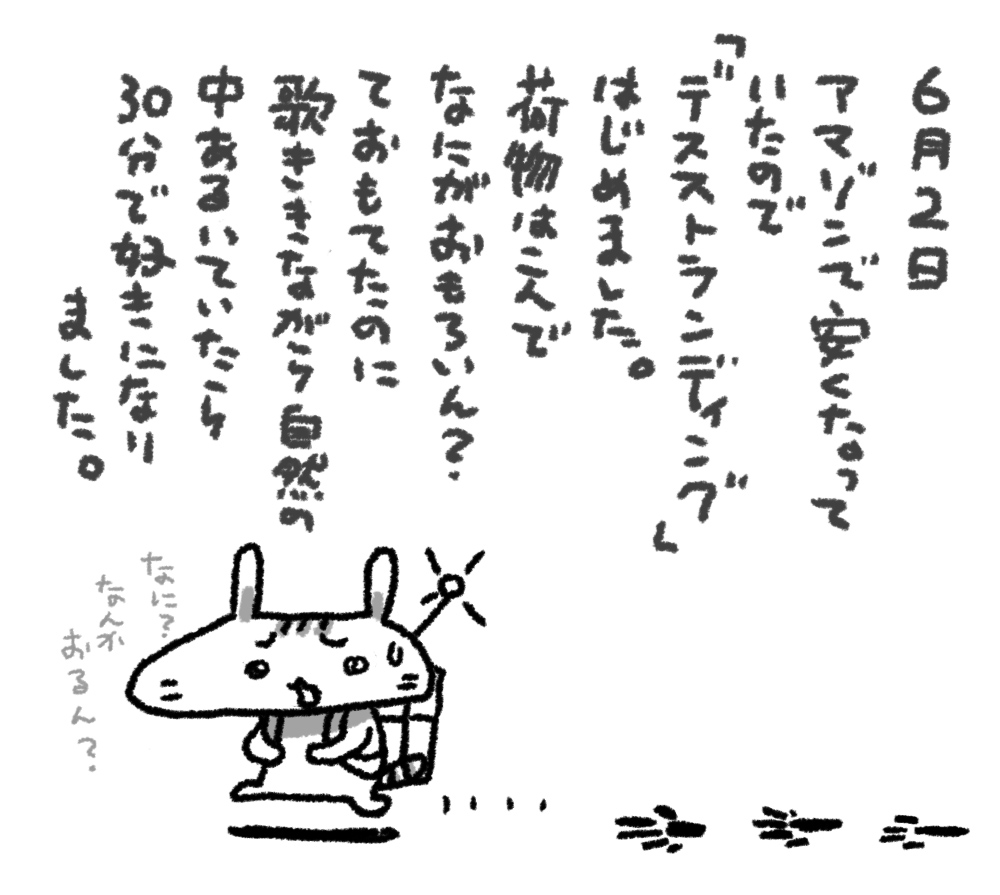 6月2日
アマゾンで、安くなって
いたので
「デスストランディング」
はじめました。
荷物はこんで
なにがおもろいん?
ておもてたのに
歌ききながら自然の
中あるいていたら
30分で好きになり
ました。
なに?
なんか
おるん?